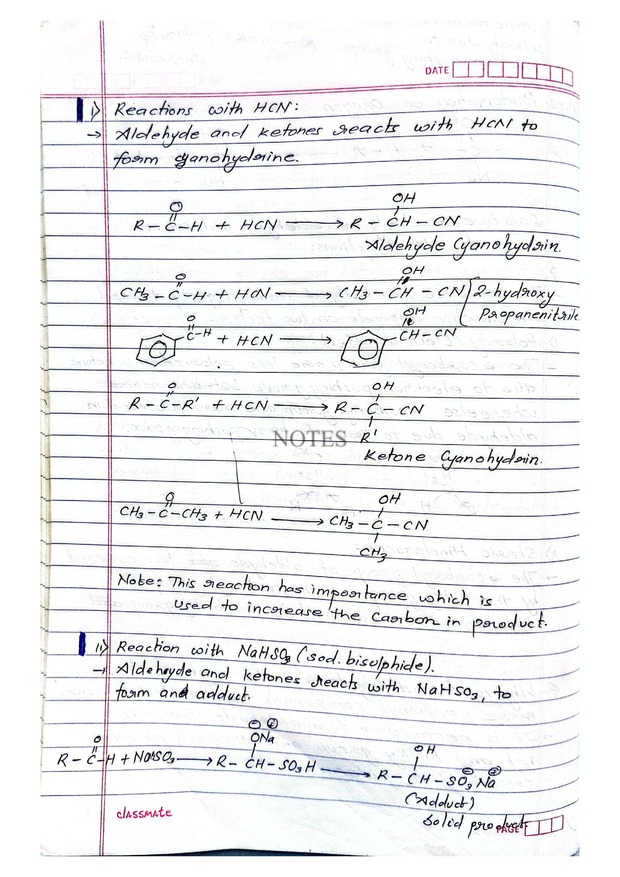 DATE
i) Reactions with HCN:
→ Aldehyde and ketones reacts with HCN to
form cyanohydrine.
O OH
R – C – H + HCN ⟶ R – CH – CN
Aldehyde Cyanohydrin.
O OH
CH3 – C – H + HCN ⟶ CH3 – CH – CN [2-hydroxy
Propanenitrile
O OH
C – H + HCN ⟶ CH – CN
O OH
R – C – R' + HCN ⟶ R – C – CN
NOTES R'
Ketone Cyanohydrin.
O OH
CH3 – C – CH3 + HCN ⟶ CH3 – C – CN
CH3
Note: This reaction has importance which is
used to increase the Carbon in product.
ii) Reaction with NaHSO3 (sod. bisulphide).
→ Aldehyde and ketones reacts with NaHSO3, to
form and adduct.
⊖ ⊕
O ONa OH
R – C – H + NaHSO3 ⟶ R – CH – SO3H ⟶ R – CH – SO3⊖ Na⊕
(Adduct)
Solid product
classmate PAGE